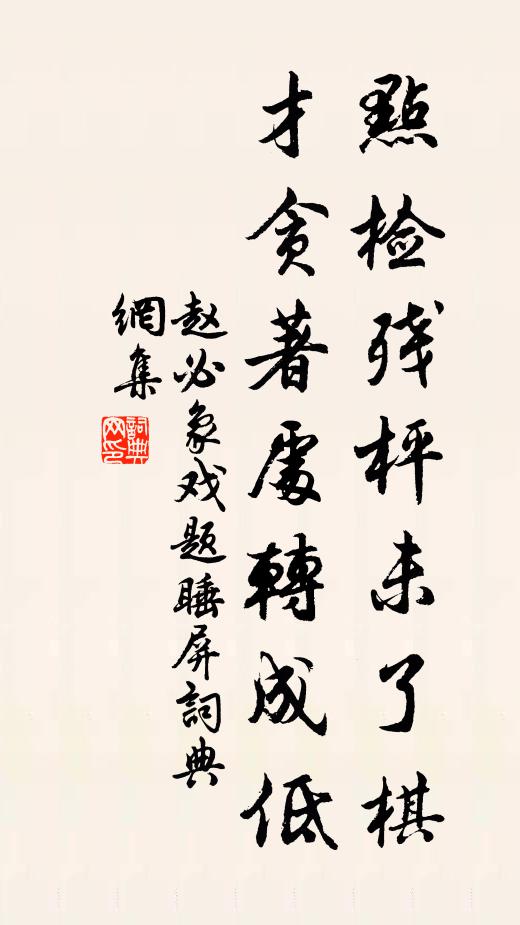 點检残枰未了棋
才贪著處轉成低
赵必象戏题睡屏詞典
網集
詞典
网印